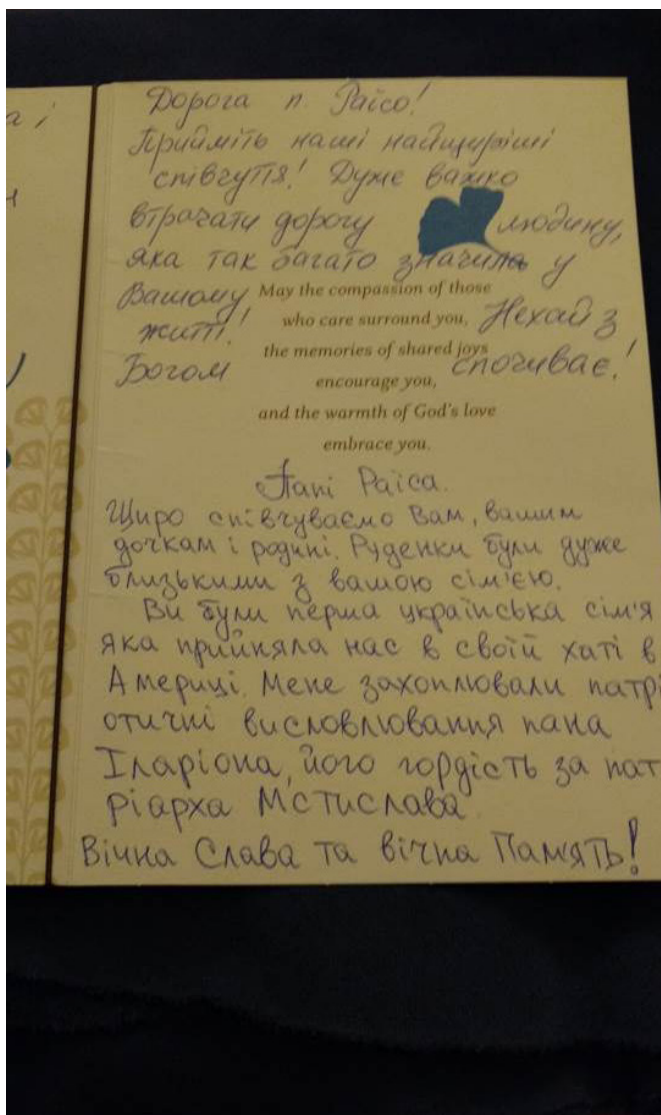 а і
Дорога п. Раїсо!
Прийміть наші найщиріші
співчуття! Дуже важко
втрачати дорогу людину,
яка так багато значила у
Вашому May the compassion of those
житті! who care surround you, Нехай з
the memories of shared joys
Богом спочиває!
encourage you,
and the warmth of God's love
embrace you.
Пані Раїса.
Щиро співчуваємо Вам, вашим
дочкам і родині. Руденки були дуже
близькими з вашою сім'єю.
Ви були перша українська сім'я
яка прийняла нас в своїй хаті в
Америці. Мене захоплювали патрі
отичні висловлювання пана
Іларіона, його гордість за пат
ріарха Мстислава
Вічна Слава та вічна Пам'ять!